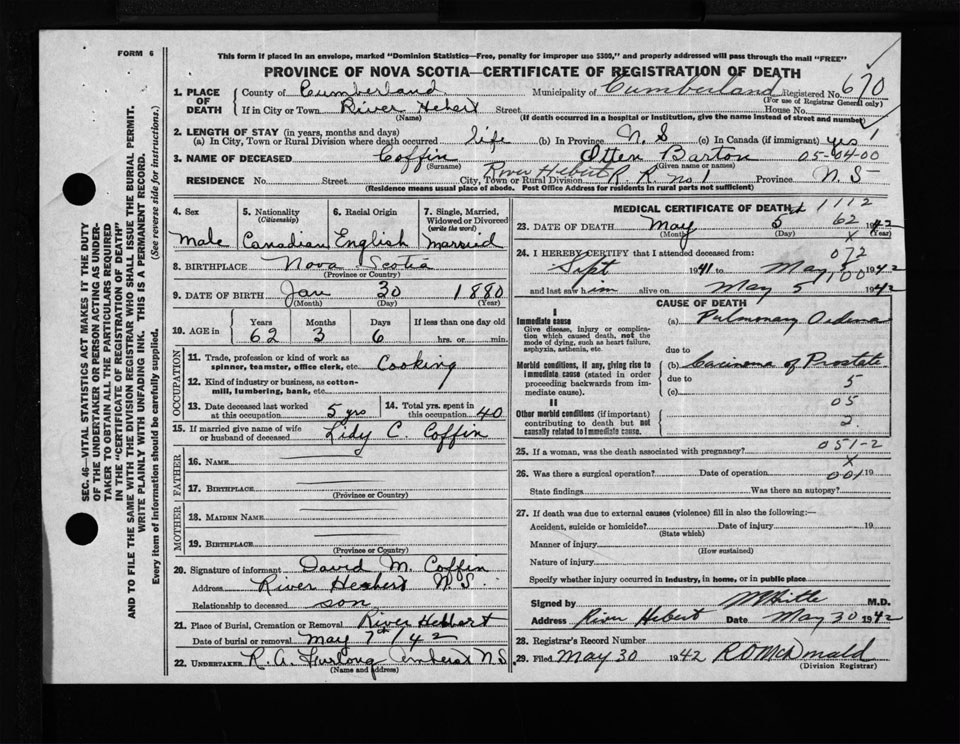 FORM 6
This form if placed in an envelope, marked "Dominion Statistics—Free, penalty for improper use $300," and properly addressed will pass through the mail "FREE"
PROVINCE OF NOVA SCOTIA—CERTIFICATE OF REGISTRATION OF DEATH
1. PLACE OF DEATH
County of Cumberland Municipality of Cumberland Registered No. 670
(For use of Registrar General only)
If in City or Town River Hebert Street House No.
(Name) (If death occurred in a hospital or institution, give the name instead of street and number)
2. LENGTH OF STAY (in years, months and days)
(a) In City, Town or Rural Division where death occurred life (b) In Province N.S (c) In Canada (if immigrant) yes 1
3. NAME OF DECEASED Coffin Otten Barton 05-04-00
(Surname) (Given name or names)
RESIDENCE No. Street City, Town or Rural River Hebert R R no 1 Province N.S
(Residence means usual place of abode. Post Office Address for residents in rural parts not sufficient)
4. Sex
Male
5. Nationality
(Citizenship)
Canadian
6. Racial Origin
English
7. Single, Married, Widowed or Divorced
(write the word)
Married
8. BIRTHPLACE Nova Scotia
(Province or Country)
9. DATE OF BIRTH Jan 30 1880
(Month) (Day) (Year)
10. AGE in
Years Months Days If less than one day old
62 3 6 hrs. or min.
OCCUPATION
11. Trade, profession or kind of work as spinner, teamster, office clerk, etc. Cooking
12. Kind of industry or business, as cotton-mill, lumbering, bank, etc.
13. Date deceased last worked at this occupation 5 yrs
14. Total yrs. spent in this occupation 40
15. If married give name of wife or husband of deceased Lidy C. Coffin
FATHER
16. NAME
17. BIRTHPLACE
(Province or Country)
MOTHER
18. MAIDEN NAME
19. BIRTHPLACE
(Province or Country)
20. Signature of informant David M. Coffin
Address River Hebert N.S.
Relationship to deceased son
21. Place of Burial, Cremation or Removal River Hebbart
Date of burial or removal May 7th/42
22. UNDERTAKER R. A. Furlong Amherst N S
(Name and address)
MEDICAL CERTIFICATE OF DEATH 1112
23. DATE OF DEATH May 5 62 1942
(Month) (Day) (Year)
x
24. I HEREBY CERTIFY that I attended deceased from: 072
Sept 1941 to May 5 1942
100
and last saw him alive on May 5 1942
CAUSE OF DEATH
I
Immediate cause
Give disease, injury or complication which caused death, not the mode of dying, such as heart failure, asphyxia, asthenia, etc.
(a) Pulmonary Oedema
due to
Morbid conditions, if any, giving rise to immediate cause (stated in order proceeding backwards from immediate cause).
(b) Carcinoma of Prostate
due to 5
(c)
05
II
Other morbid conditions (if important) contributing to death but not causally related to immediate cause.
2
25. If a woman, was the death associated with pregnancy? 051-2
x
26. Was there a surgical operation? Date of operation 001 19
State findings Was there an autopsy?
27. If death was due to external causes (violence) fill in also the following:—
Accident, suicide or homicide? Date of injury 19
(State which)
Manner of injury
(How sustained)
Nature of injury
Specify whether injury occurred in industry, in home, or in public place
Signed by M.D.
Address River Hebert Date May 30 1942
28. Registrar's Record Number
29. Filed May 30 1942 R O McDonald
(Division Registrar)
SEC. 46—VITAL STATISTICS ACT MAKES IT THE DUTY
OF THE UNDERTAKER OR PERSON ACTING AS UNDER-
TAKER TO OBTAIN ALL THE PARTICULARS REQUIRED
IN THE "CERTIFICATE OF REGISTRATION OF DEATH"
AND TO FILE THE SAME WITH THE DIVISION REGISTRAR WHO SHALL ISSUE THE BURIAL PERMIT.
WRITE PLAINLY WITH UNFADING INK. THIS IS A PERMANENT RECORD.
Every item of information should be carefully supplied. (See reverse side for instructions.)